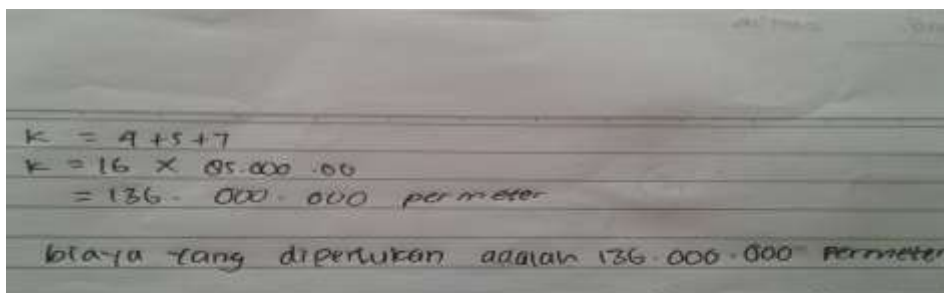 K = 4 + 5 + 7
K = 16 × 85.000.00
= 136.000.000 permeter
biaya yang diperlukan adalah 136.000.000 permeter